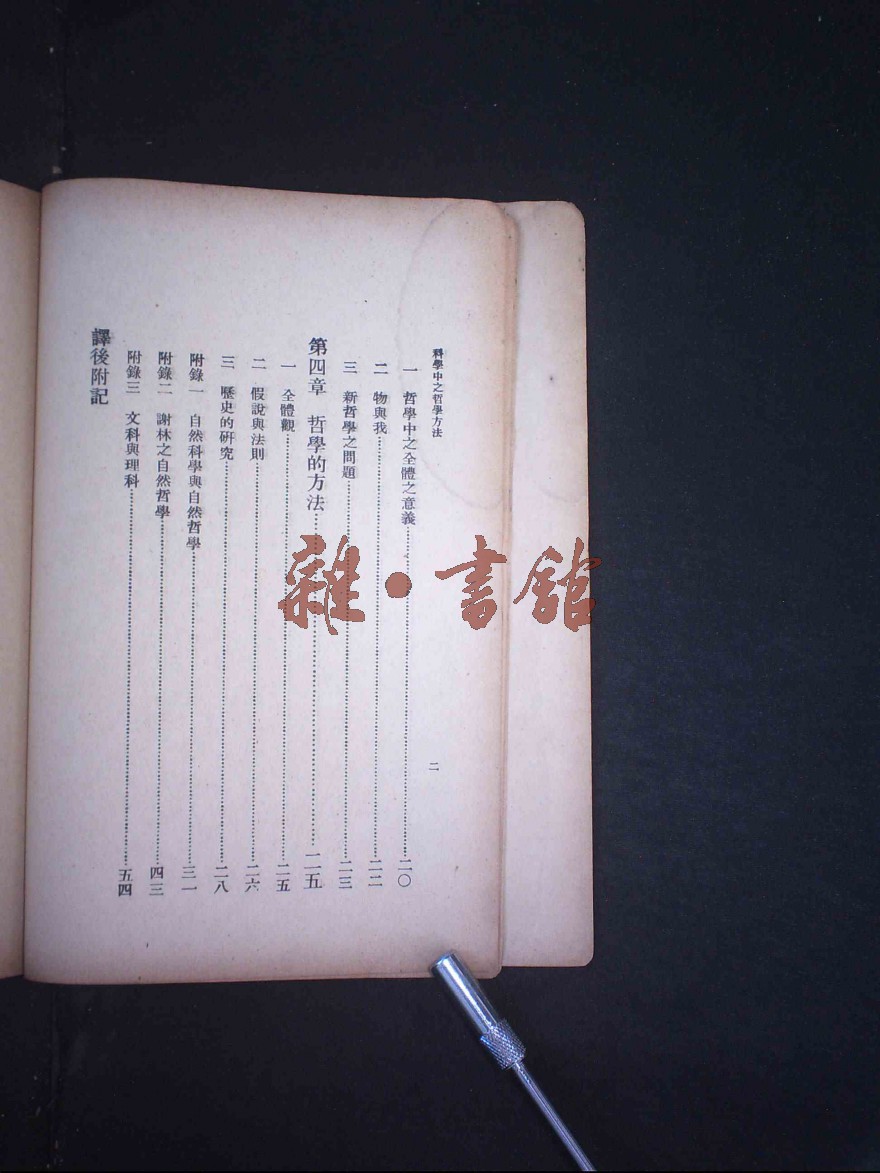 科學中之哲學方法
二
一 哲學中之全體之意義………二〇
二 物與我………二二
三 新哲學之問題………二三
第四章 哲學的方法………二五
一 全體觀………二五
二 假說與法則………二六
三 歷史的研究………二八
附錄一 自然科學與自然哲學………三一
附錄二 謝林之自然哲學………四三
附錄三 文科與理科………五四
譯後附記
雜·書館